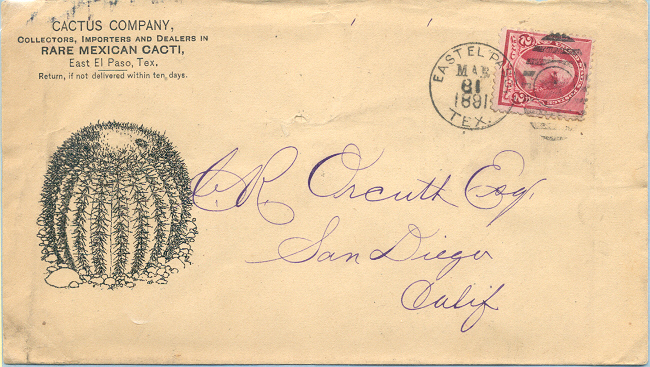 CACTUS COMPANY,
COLLECTORS, IMPORTERS AND DEALERS IN
RARE MEXICAN CACTI,
East El Paso, Tex.
Return, if not delivered within ten days.
EAST EL PASO
MAR
31
1891
TEX.
2 2
C. R. Orcutt Esq.
San Diego
Calif